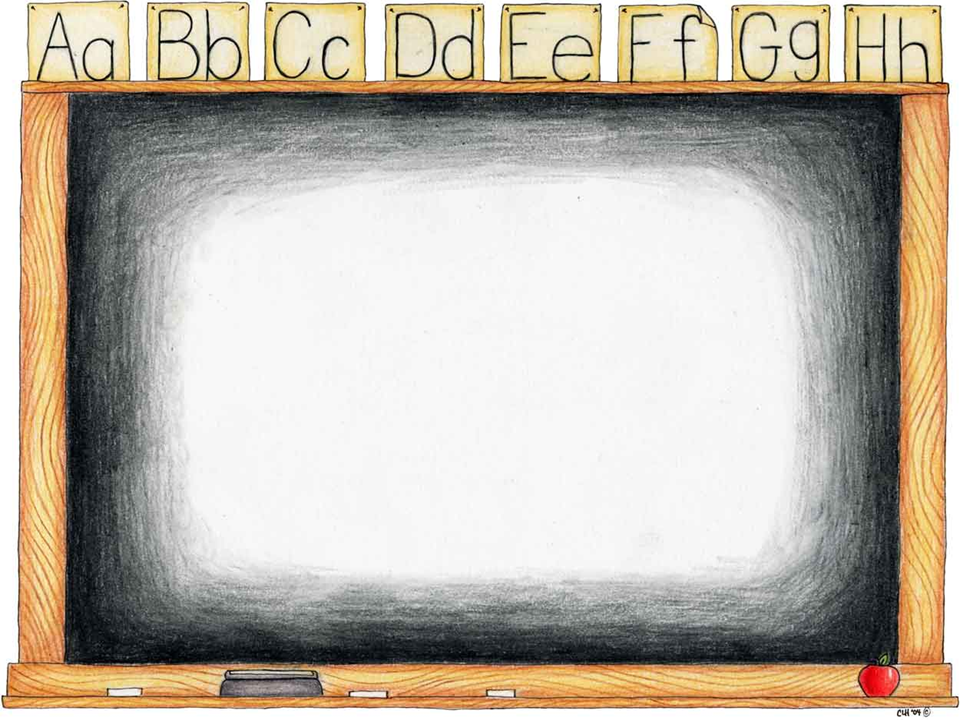 Aa Bb Cc Dd Ee Ff Gg Hh
CLH '04 ©